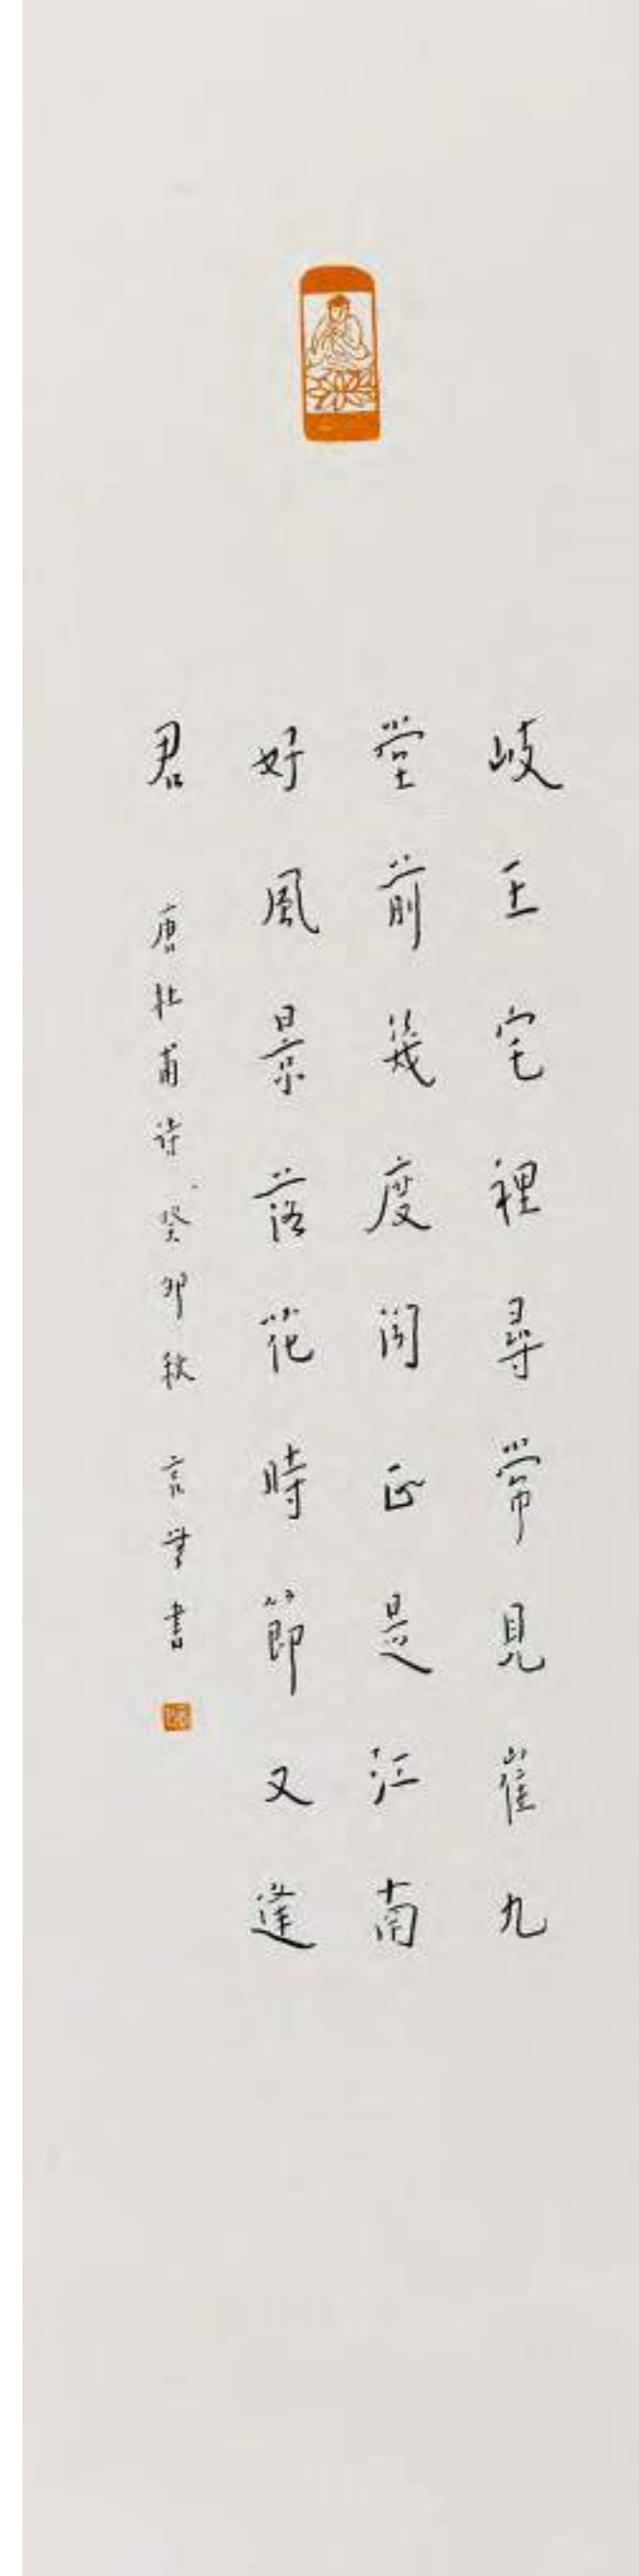 岐王宅裡尋常見崔九
堂前幾度聞正是江南
好風景落花時節又逢
君 唐杜甫詩 癸卯秋 書